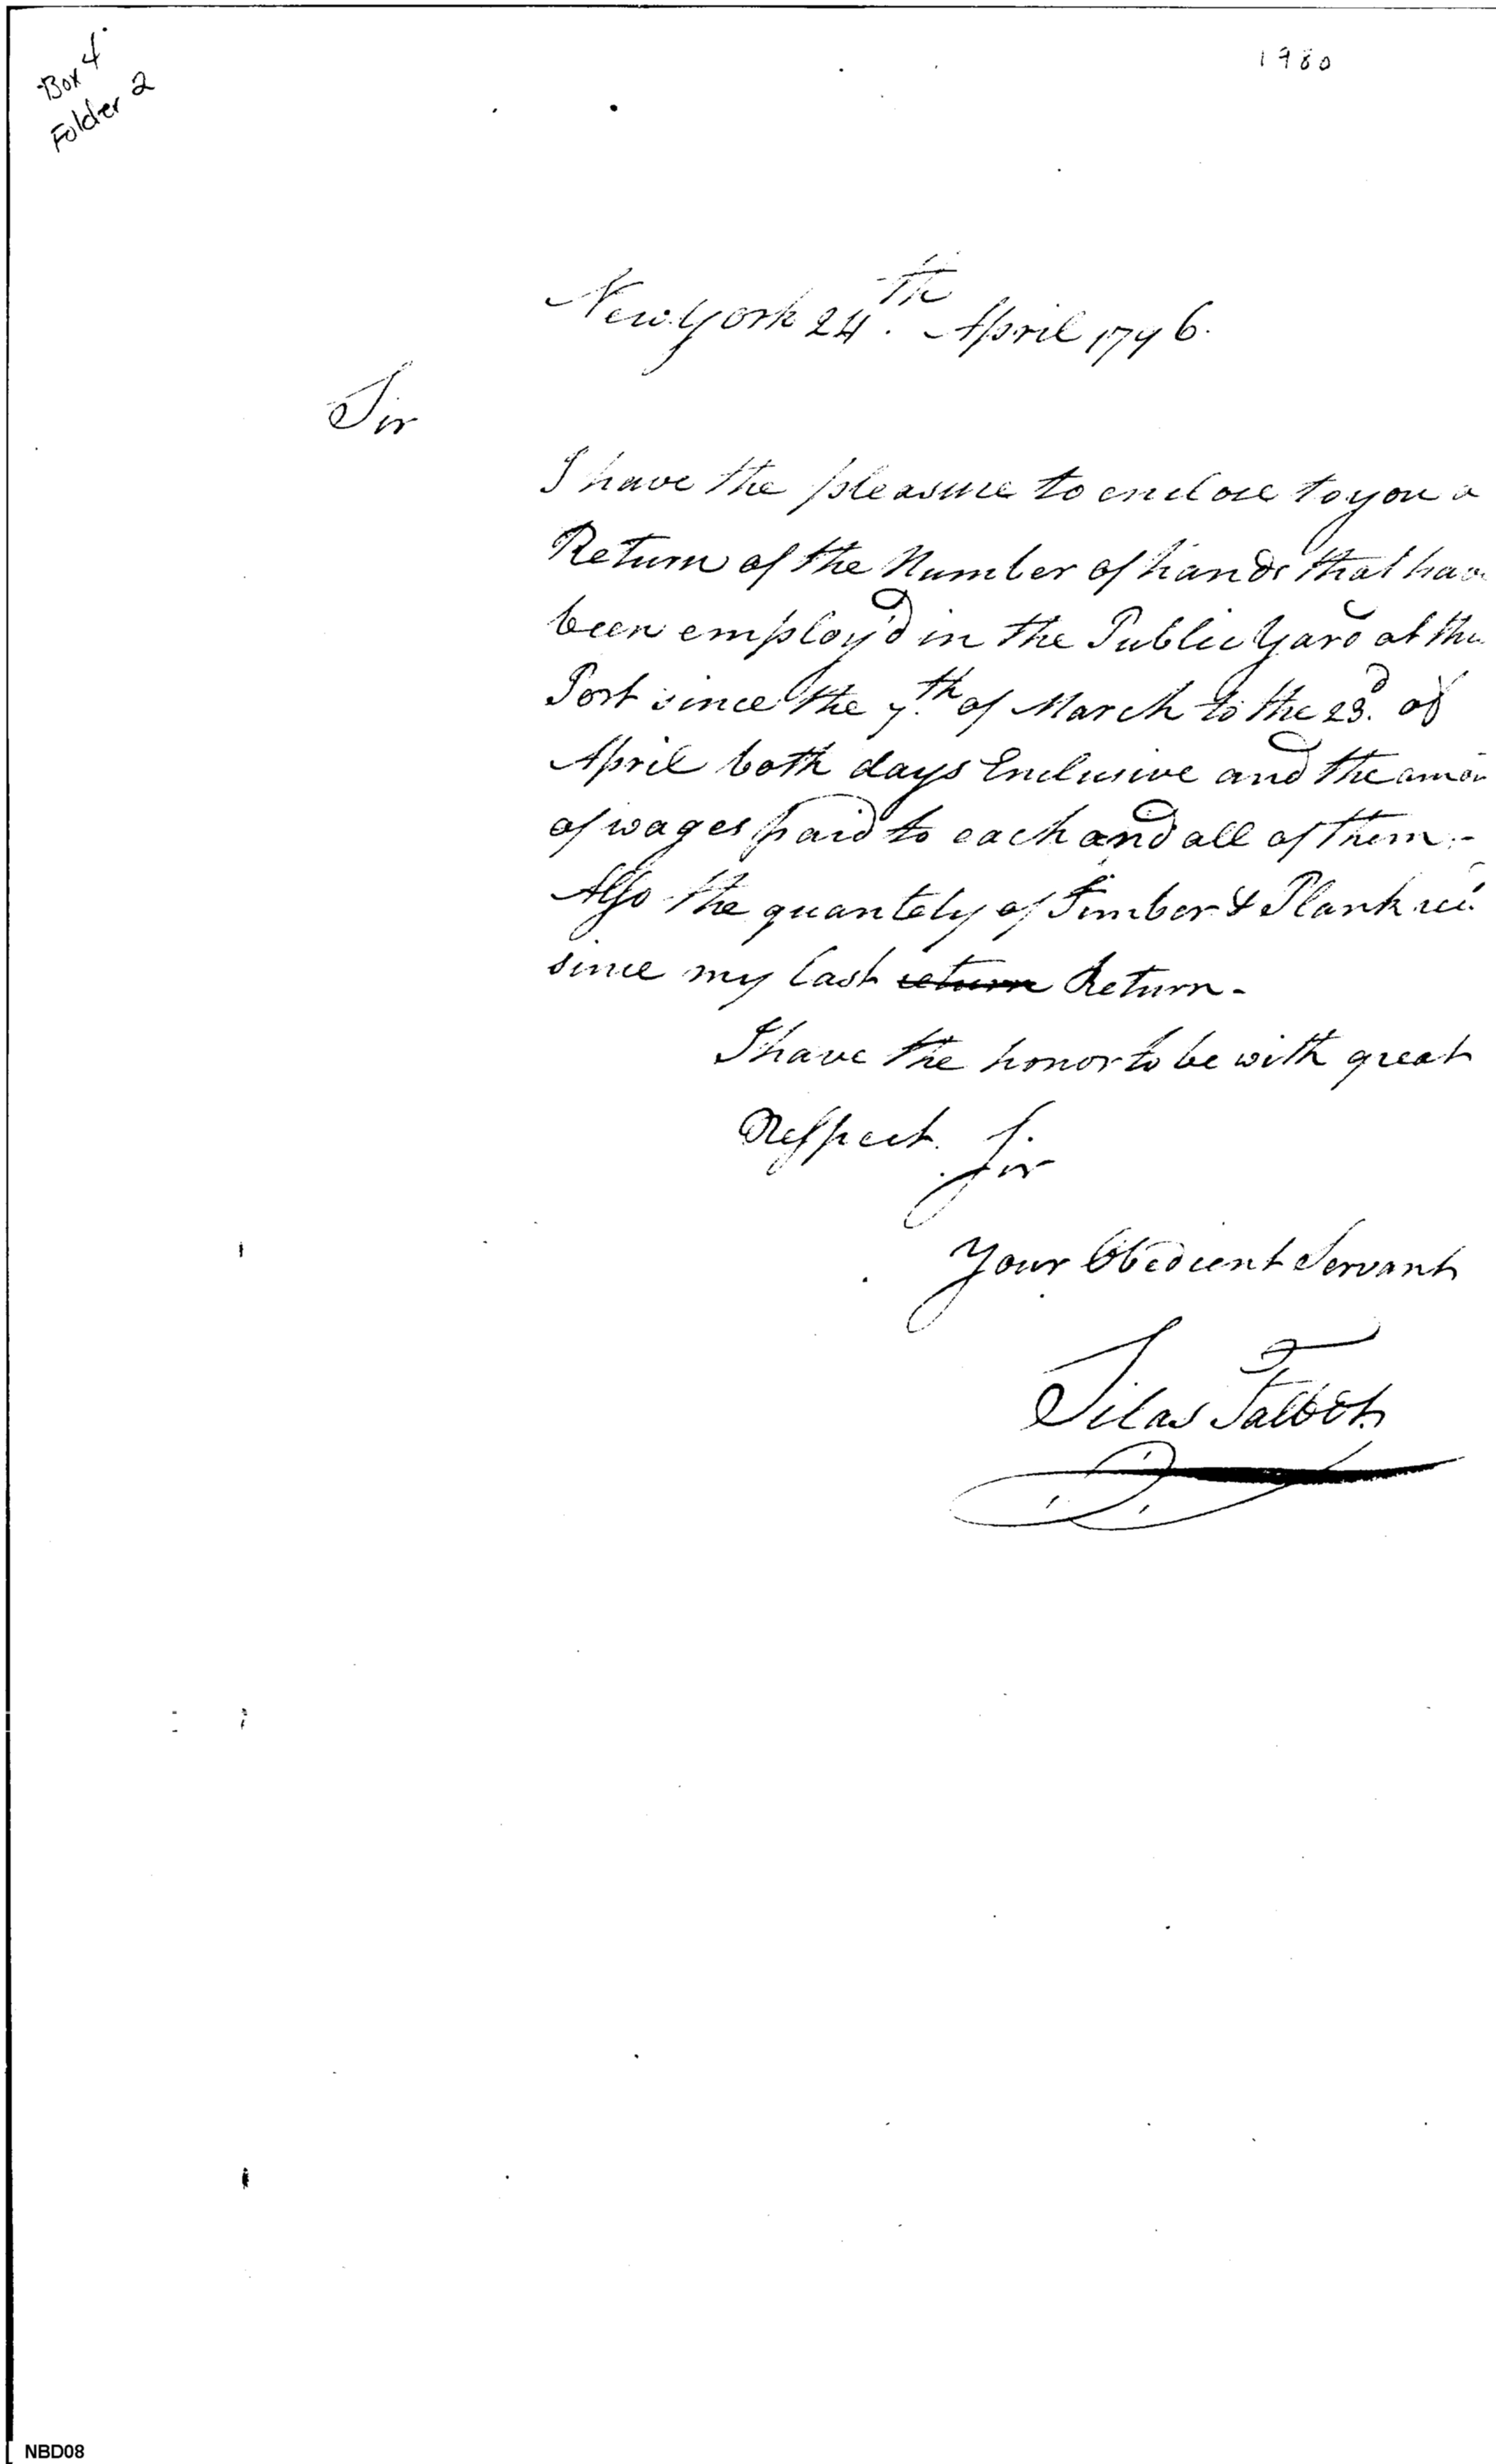 Box 4
Folder 2
1780
New York 24th. April 1796.
Sir
I have the pleasure to enclose to you a
Return of the Number of hands that hav
been employ'd in the Public Yard at the
Port since the 7th. of March to the 23d. of
April both days Enclusive and the amo
of wages paid to each and all of them.-
Also the quantety of Timber & Plank
since my last return Return-
I have the honor to be with great
Respect. Sir
Your Obedient Servant
Silas Talbot
NBD08